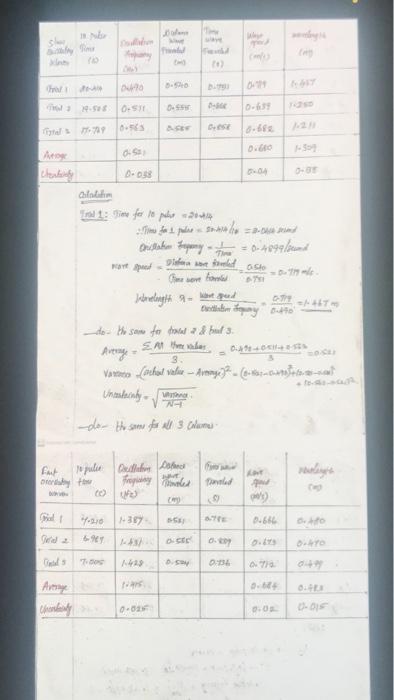 Slow 10 pulse Oscillation Distance Time Wave wavelength
Oscillating Time Frequency wave wave speed
Waves (s) (Hz) Traveled Traveled (m/s) (m)
(m) (s)
Trial 1 20.414 0.490 0.540 0.751 0.719 1.467
Trial 2 19.568 0.511 0.555 0.639 1.250
Trial 3 17.749 0.563 0.585 0.858 0.682 1.211
Average 0.521 0.680 1.309
Uncertainty 0.038 0.04
Calculation
Trial 1: Time for 10 pulse = 20.414
∴ Time for 1 pulse = 20.414/10 = 2.0414 second
Oscillation frequency = 1/Time = 0.4899/second
wave speed = Distance wave traveled / Time wave traveled = 0.540/0.751 = 0.719 m/s.
Wavelength λ = Wave speed / Oscillation frequency = 0.719/0.490 = 1.467 m
do the same for trial 2 & trial 3.
Average = Σ All three values / 3 = 0.490+0.511+0.563 / 3 = 0.521
Variance (actual value - Average)²
Uncertainty = √ Variance / N-1
do the same for all 3 Columns
Fast 10 pulse Oscillation Distance Time wave wave wavelength
Oscillating time frequency wave Traveled speed (m)
waves (s) (Hz) Traveled (s) (m/s)
(m)
Trial 1 7.210 1.387 0.666 0.480
Trial 2 6.989 1.431 0.673 0.470
Trial 3 7.005 1.428 0.524 0.736 0.712 0.499
Average 1.415 0.684 0.483
Uncertainty 0.025 0.02 0.015